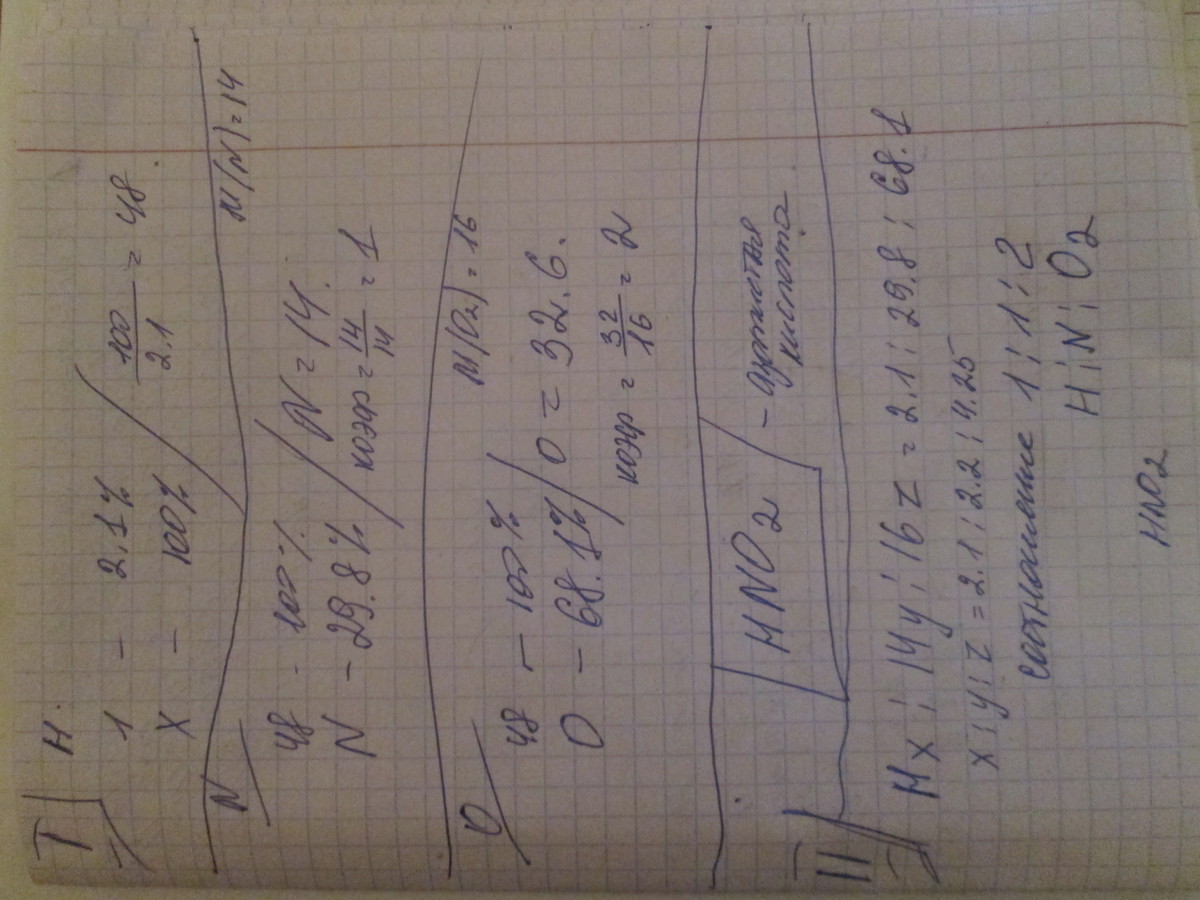 I H
1 - 2.1%
x - 100%
100/2.1 = 48.
N M(N)=14
48 - 100%
N - 29.8%
N = 14.
коэф = 14/14 = 1
O M(O2)=16
48 - 100%
O - 68.1%
O = 32.6.
коэф = 32/16 = 2
HNO2 - азотистая
кислота
II Hx : 14y : 16z = 2.1 : 29.8 : 68.1
x : y : z = 2.1 : 2.2 : 4.25
соотношение 1 : 1 : 2
H : N : O2
HNO2